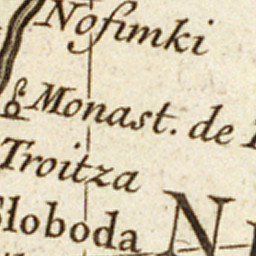 Nosimki
Monast. de
Troitza
Sloboda N